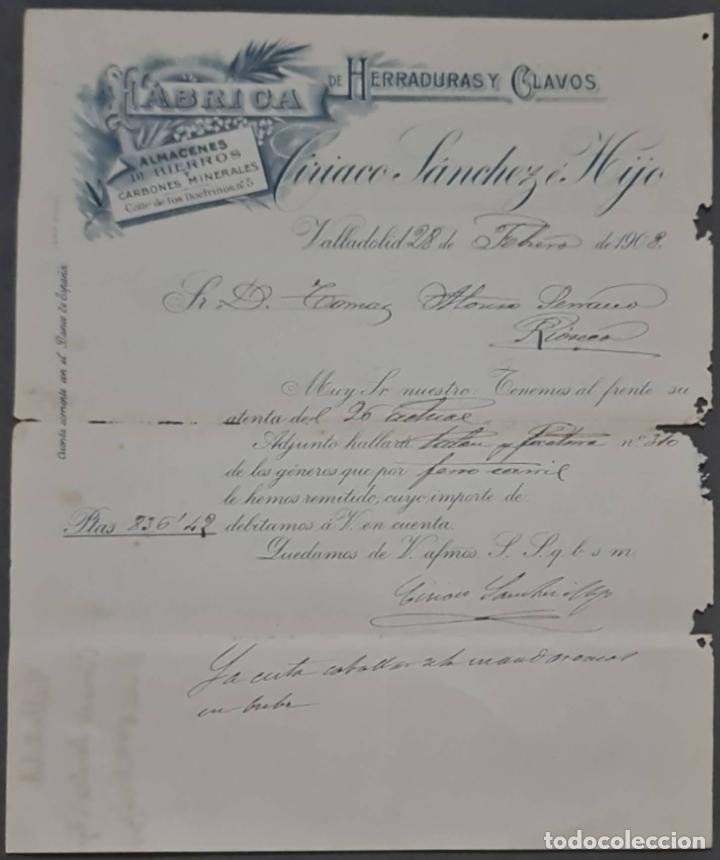 FÁBRICA
DE HERRADURAS Y CLAVOS
ALMACENES
DE HIERROS
Y
CARBONES MINERALES
Calle de los Doctrinos, nº 5
Ciriaco Sánchez é Hijo
Valladolid 28 de Febrero de 1908.
Sr. D. Tomas Alonso Serrano
Rioseco
Cuenta corriente en el Banco de España
Muy Sr. nuestro: Tenemos al frente su
atenta del 26 actual
Adjunto hallará talon y factura nº 310
de los géneros que por ferro carril
le hemos remitido, cuyo importe de
Ptas 836'42 debitamos á V. en cuenta.
Quedamos de V. afmos. S. S. q. b. s. m.
Ciriaco Sanchez é Hijo
La
en
todocoleccion